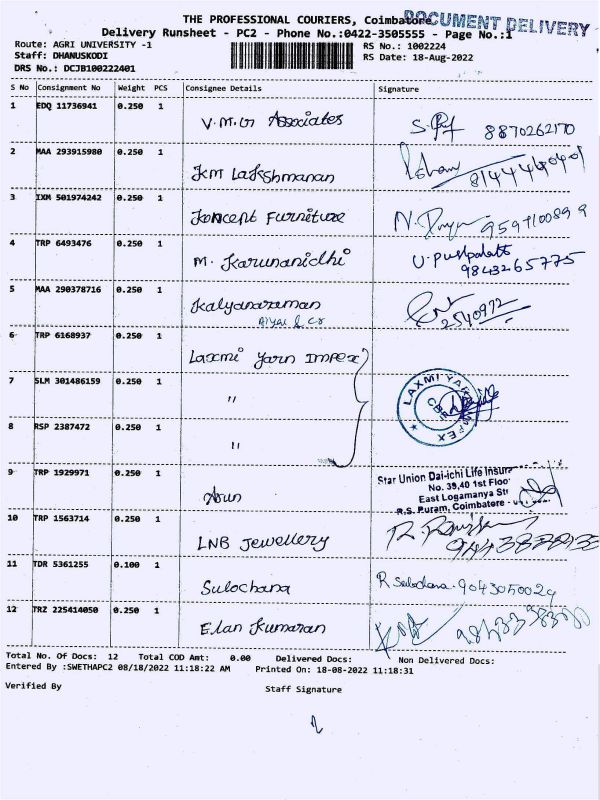 THE PROFESSIONAL COURIERS, Coimbatore
DOCUMENT DELIVERY
Delivery Runsheet - PC2 - Phone No.:0422-3505555 - Page No.:1
Route: AGRI UNIVERSITY -1 RS No.: 1002224
Staff: DHANUSKODI RS Date: 18-Aug-2022
DRS No.: DCJB100222401
S No Consignment No Weight PCS Consignee Details Signature
1 EDQ 11736941 0.250 1 V.M.G Associates 8870262170
2 MAA 293915980 0.250 1 KM Lakshmanan
3 IXM 501974242 0.250 1 Koncept Furniture
4 TRP 6493476 0.250 1 M. Karunanidhi U. Pushpalatha 9843265775
5 MAA 290378716 0.250 1 Kalyanaraman 2540972
Aiyar & Co
6 TRP 6168937 0.250 1 Laxmi Yarn Impex
7 SLM 301486159 0.250 1 "
LAXMI YARN IMPEX
CBE
8 RSP 2387472 0.250 1 "
Star Union Dai-ichi Life Insur
No. 39,40 1st Floor
East Logamanya Str
R.S. Puram, Coimbatore -
9 TRP 1929971 0.250 1 Arun
10 TRP 1563714 0.250 1 LNB Jewellery
11 TDR 5361255 0.100 1 Sulochana R Sulochana. 9043050029
12 TRZ 225414050 0.250 1 Elan Kumaran
Total No. Of Docs: 12 Total COD Amt: 0.00 Delivered Docs: Non Delivered Docs:
Entered By :SWETHAPC2 08/18/2022 11:18:22 AM Printed On: 18-08-2022 11:18:31
Verified By Staff Signature